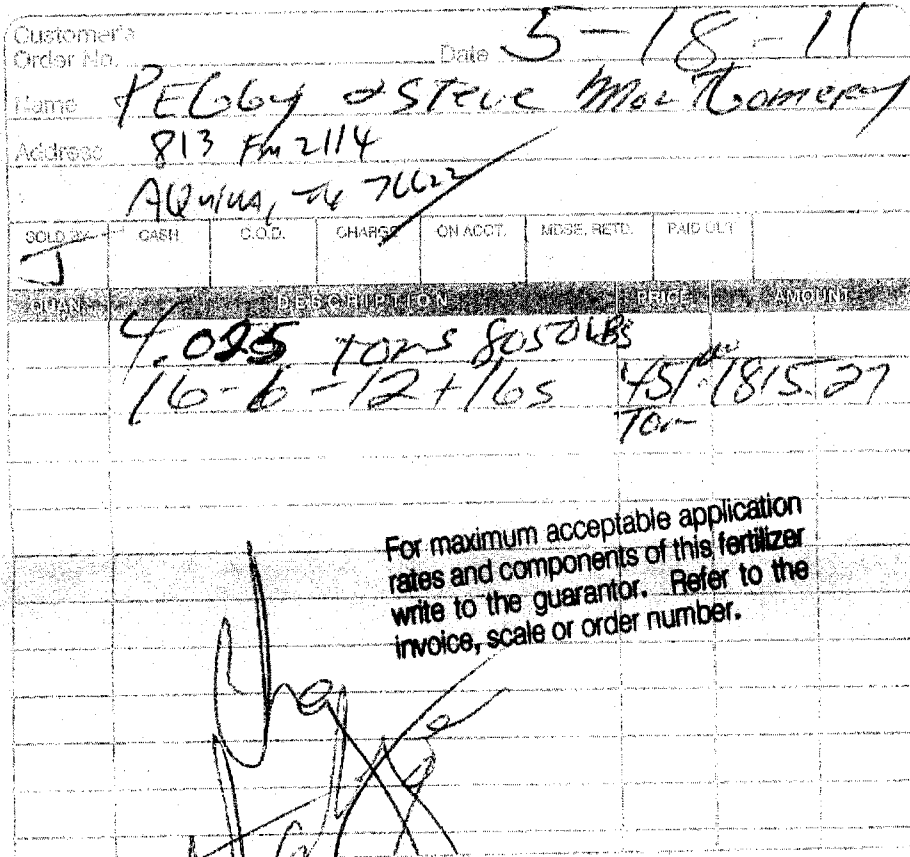 Customer's
Order No. Date 5-18-11
Name PEGGy & STeve MonTGomery
Address 813 Fm 2114
AQuilla, Tx 76622
SOLD BY CASH C.O.D. CHARGE ON ACCT. MDSE. RETD. PAID OUT
J
QUAN. DESCRIPTION PRICE AMOUNT
4.025 Tons 8050 LBS
16-6-12+16s 451.00 1815.27
Ton
For maximum acceptable application
rates and components of this fertilizer
write to the guarantor. Refer to the
invoice, scale or order number.